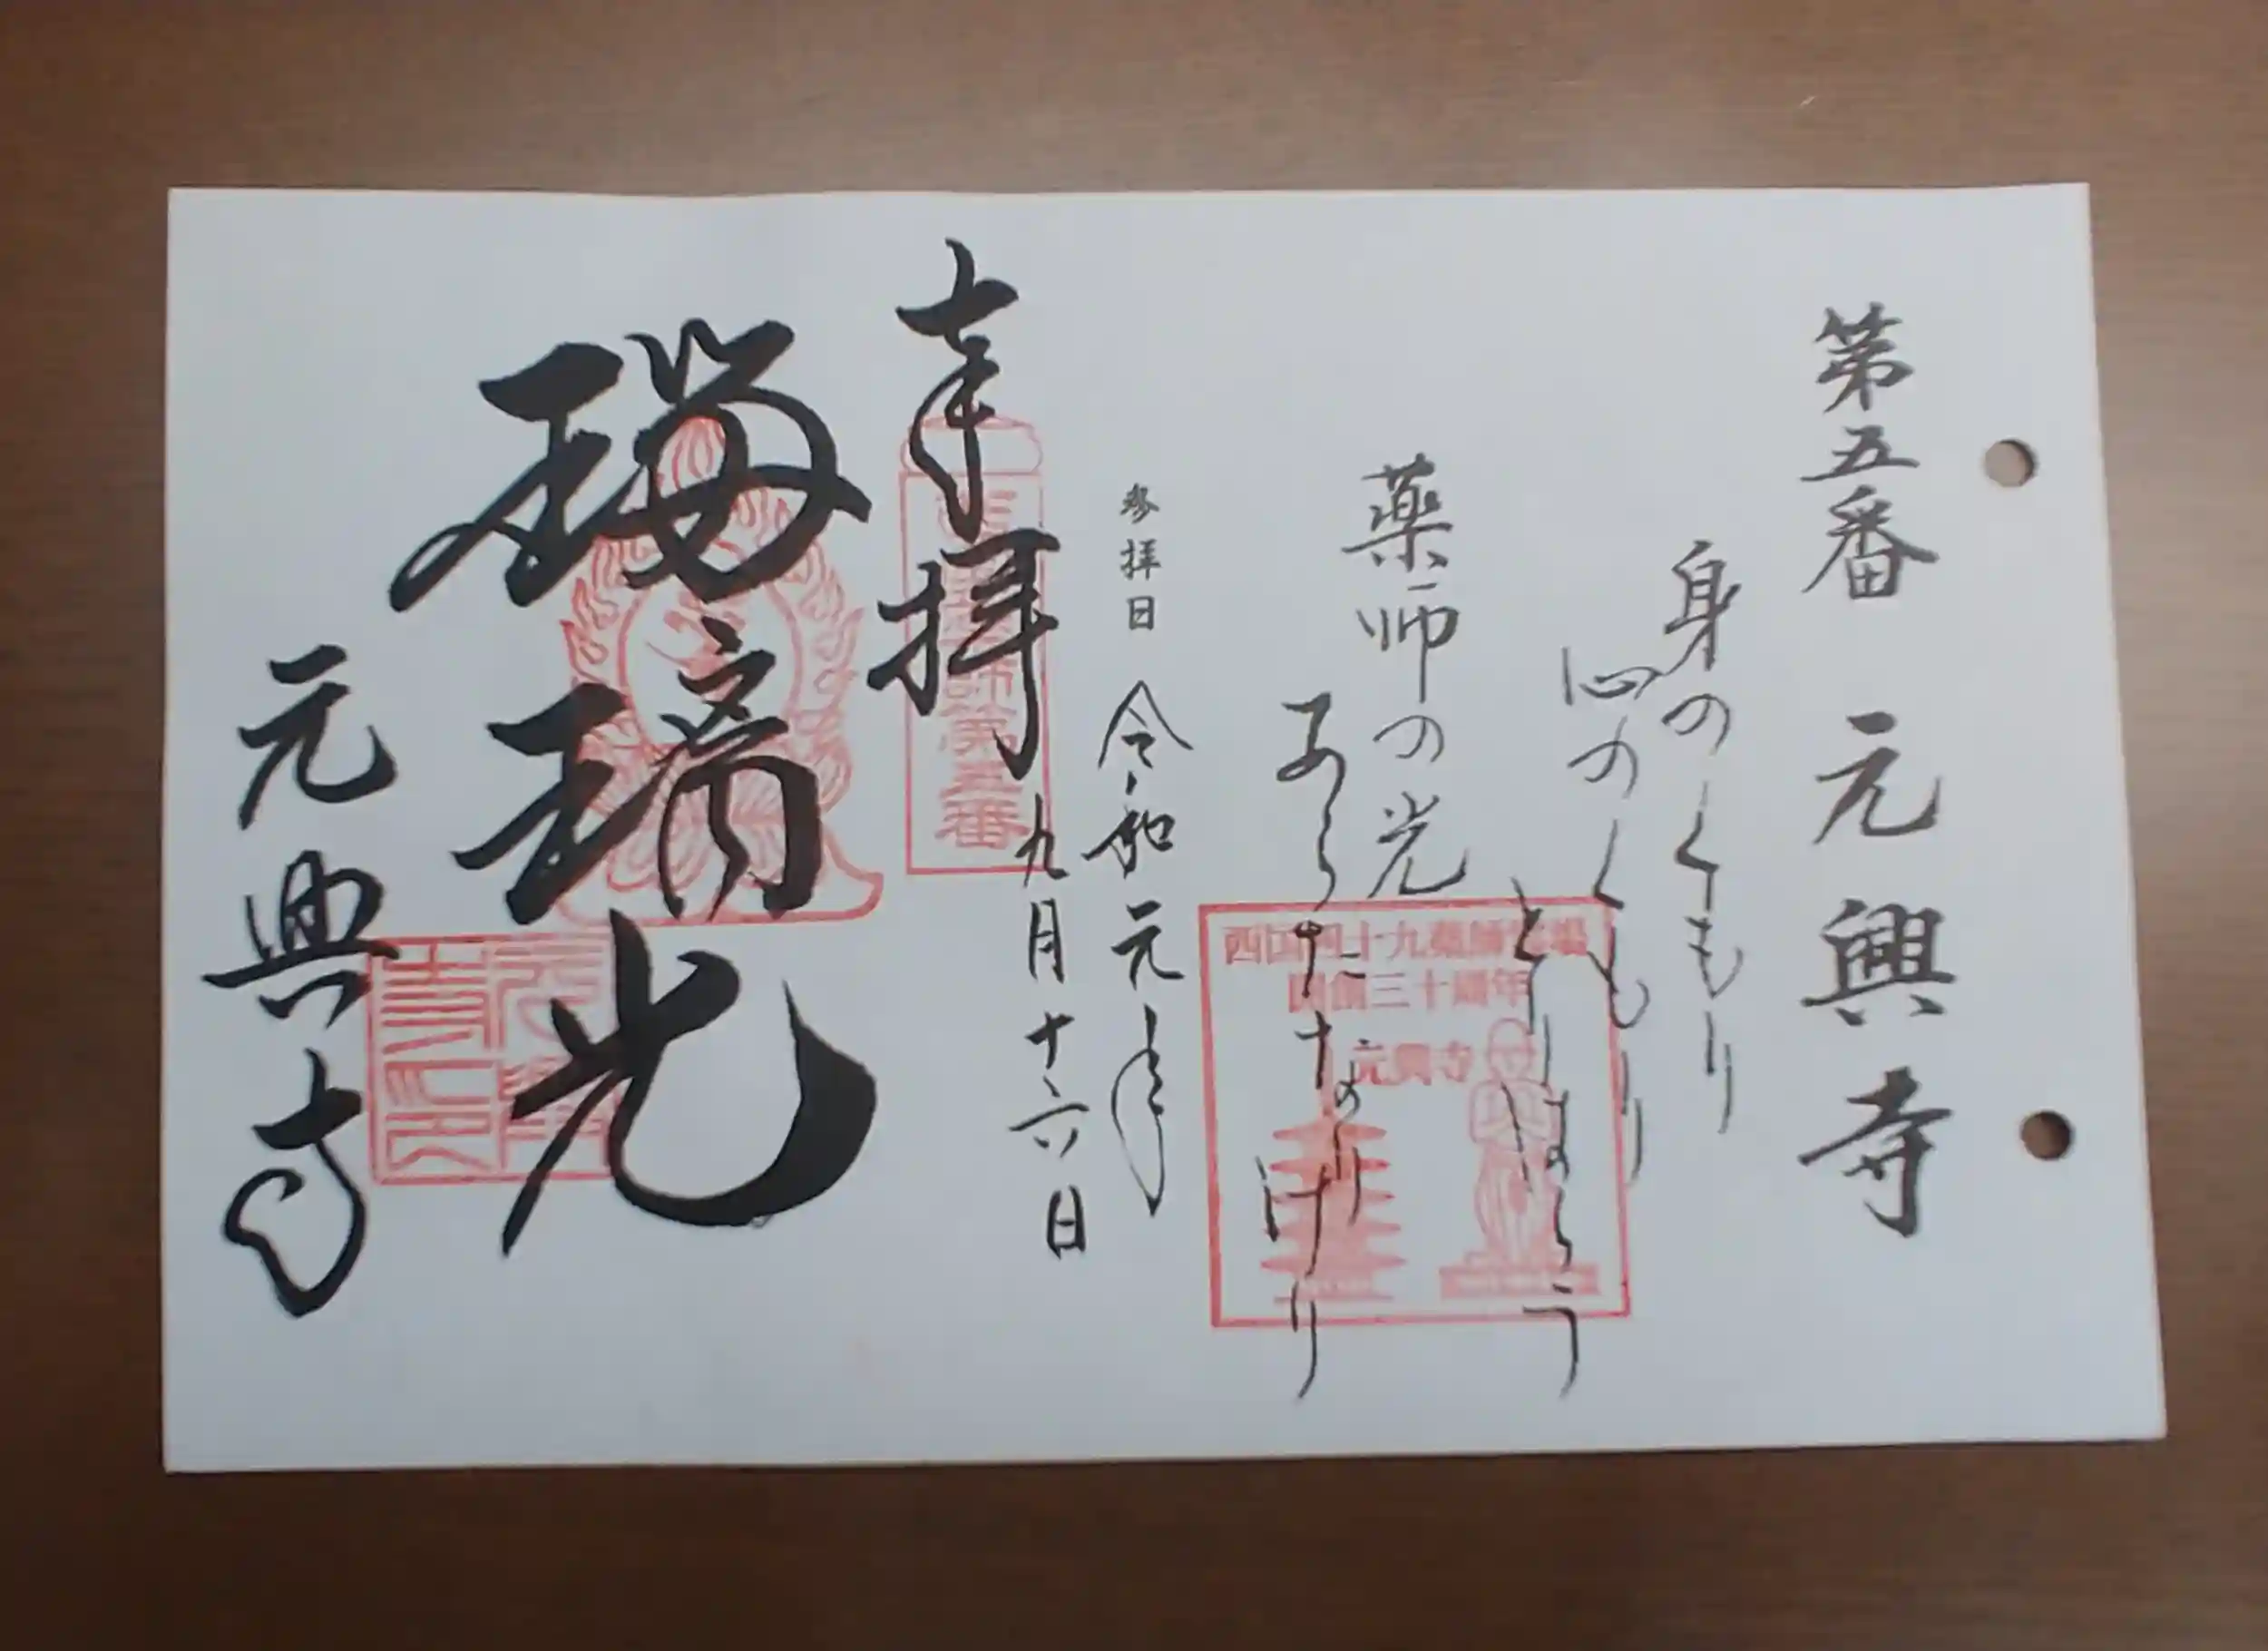 第五番 元興寺
身のくもり
心のくもり
とりはらう
薬師の光
あらたなりけり
西国四十九薬師霊場
開創三十周年
元興寺
参拝日 令和元年
九月十六日
奉拝
薬師第五番
瑠璃光
元興寺
元興寺印